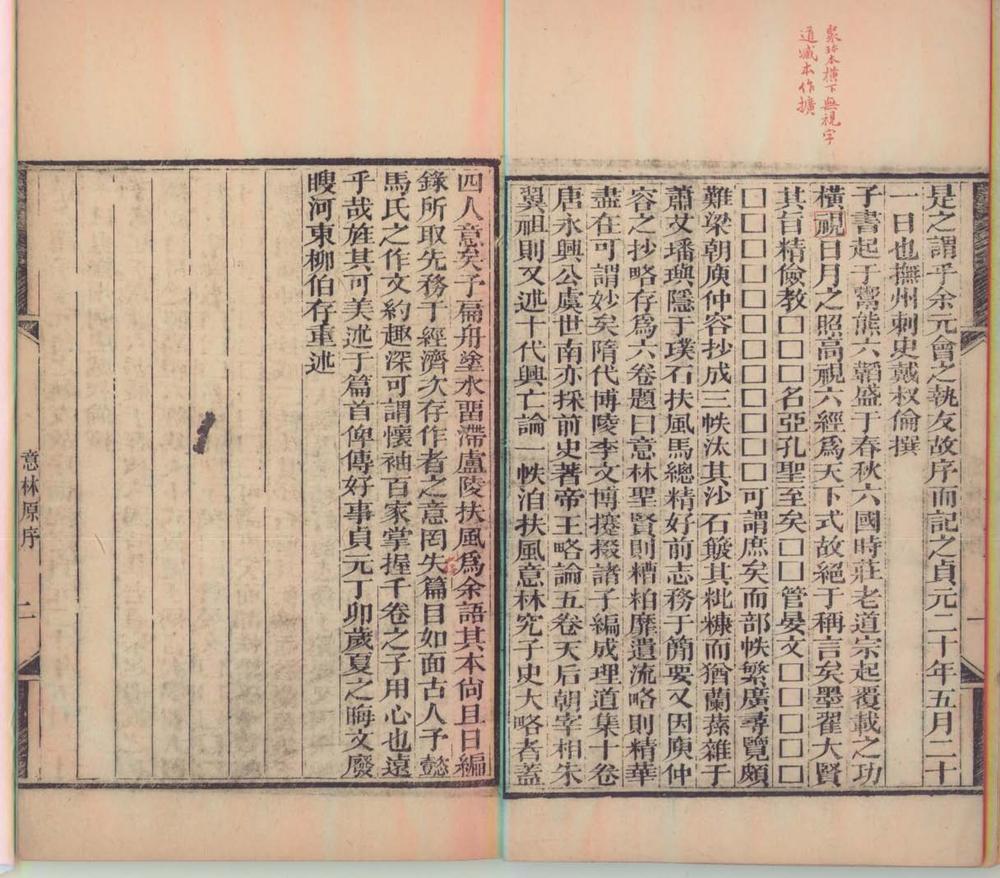 聚珍本橫下無視字
道臧本作擴
是之謂乎余元會之執友故序而記之貞元二十年五月二十
一日也撫州刺史戴叔倫撰
子書起于鬻熊六韜盛于春秋六國時莊老道宗起覆載之功
橫視日月之照高視六經爲天下式故絕于稱言矣墨翟大賢
其旨精儉教□□名亞孔聖至矣□□管晏文□□□□□
□□□□□□□□□□□□可謂庶矣而部帙繁廣尋覽頗
難梁朝庾仲容抄成三帙汰其沙石簸其粃糠而猶蘭蓀雜于
蕭艾璠璵隱于璞石扶風馬總精好前志務于簡要又因庾仲
容之抄略存爲六卷題曰意林聖賢則糟粕靡遺流略則精華
盡在可謂妙矣隋代博陵李文博攓掇諸子編成理道集十卷
唐永興公虞世南亦採前史著帝王略論五卷天后朝宰相朱
翼祖則又述十代興亡論一帙洎扶風意林究子史大略者蓋
一
四人意矣予扁舟塗水畱滯廬陵扶風爲余語其本尙且日編
錄所取先務于經濟次存作者之意罔失篇目如面古人予懿
馬氏之作文約趣深可謂懷袖百家掌握千卷之子用心也遠
乎哉旌其可美述于篇首俾傳好事貞元丁卯歲夏之晦文廢
瞍河東柳伯存重述
意林原序
二